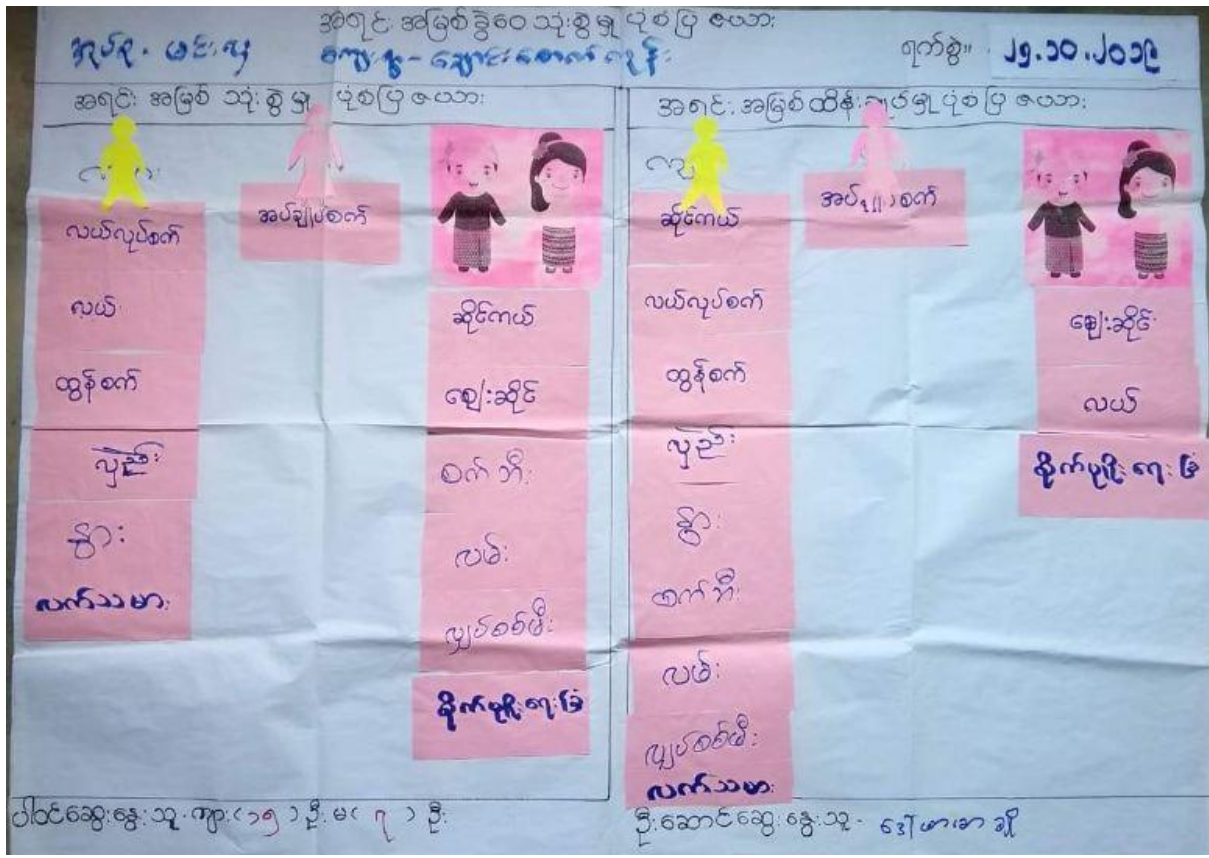 အရင်း အမြစ်ခွဲဝေ သုံးစွဲမှု ပုံစံပြ ဇယား
အုပ်စု - မင်းလှ
ကျေးရွာ - ချောင်းစောက်ကုန်း
ရက်စွဲ။ ၂၅.၁၀.၂၀၁၉
အရင်း အမြစ် သုံးစွဲမှု ပုံစံပြ ဇယား
လယ်လုပ်စက်
လယ်
ထွန်စက်
လှည်း
နွား
လက်သမား
အပ်ချုပ်စက်
ဆိုင်ကယ်
ဈေးဆိုင်
စက်ဘီး
လမ်း
လျှပ်စစ်မီး
စိုက်ပျိုးရေးခြံ
အရင်း အမြစ်ထိန်းချုပ်မှု ပုံစံပြ ဇယား
ဆိုင်ကယ်
လယ်လုပ်စက်
ထွန်စက်
လှည်း
နွား
စက်ဘီး
လမ်း
လျှပ်စစ်မီး
လက်သမား
အပ်ချုပ်စက်
ဈေးဆိုင်
လယ်
စိုက်ပျိုးရေးခြံ
ပါဝင်ဆွေးနွေးသူ - ကျား (၁၅) ဦး မ (၇) ဦး
ဦးဆောင်ဆွေးနွေးသူ - ဒေါ်